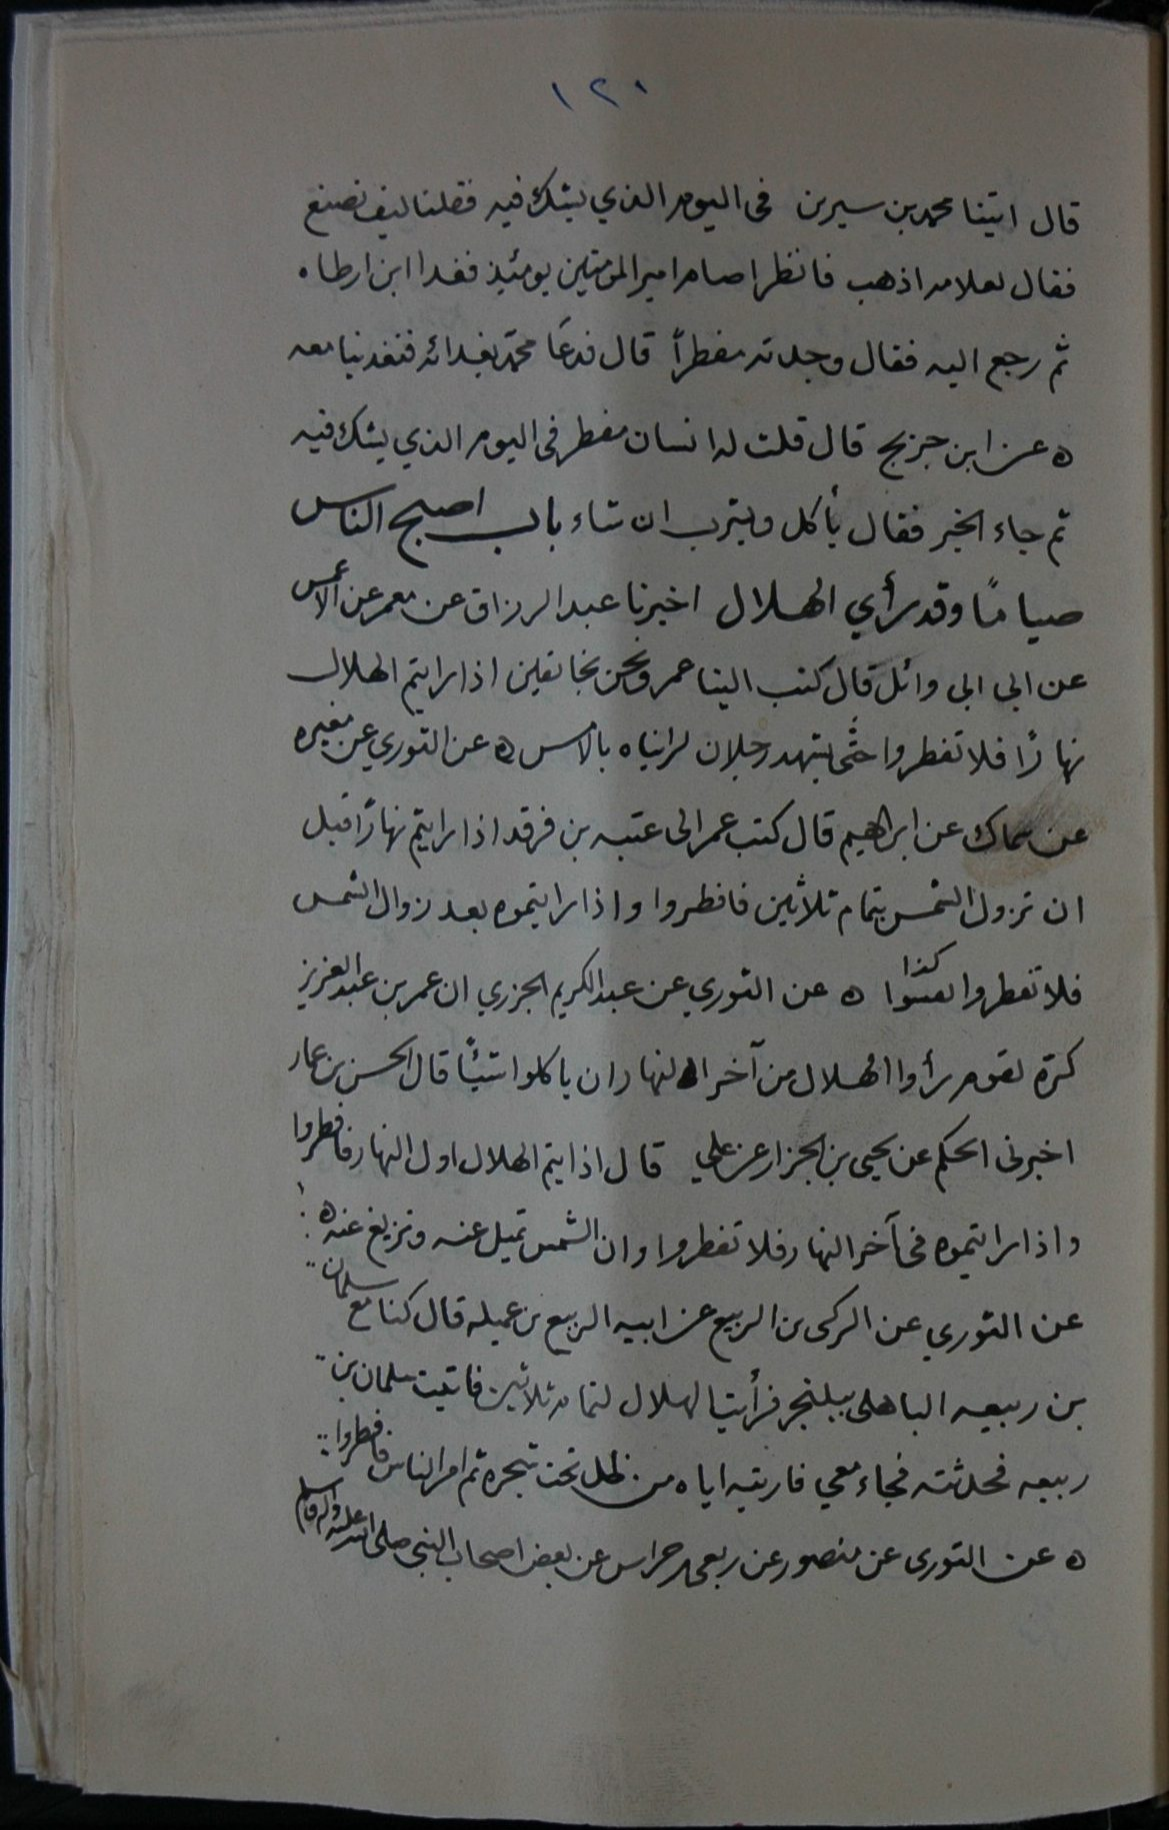 ١٢٠
قال اتينا محمد بن سيرين فى اليوم الذي يشك فيه فقلنا ليف نصنع
فقال لعلامه اذهب فانظر اصام امير المومنين يومئيذ فغدا ابن ارطاه
ثم رجع اليه فقال وجدته مفطراً قال فدعَا محمّد بغدائه فتغدينا معه
ه عن ابن جريج قال قلت له انسان مفطر فى اليوم الذي يشك فيه
ثم جاء الخبر فقال يأكل ويشرب ان شاء باب اصبح الناس
صيامًا وقد رأي الهلال اخبرنا عبد الرزاق عن معمر عن الاعمس
عن ابى ابى وائل قال كتب الينا عمر ونحن بخانقين اذا رايتم الهلال
نهارًا فلا تفطروا حتّى يشهد رجلان لرايناه بالامس ه عن الثوري عن مغيره
عن سماك عن ابراهيم قال كتب عمر الى عتبه بن فرقد اذا رايتم نهارًا قبل
ان تزول الشمس بتمام ثلاثين فافطروا واذا رايتموه بعد زوال الشمس
فلا تفطروا لعسوا كذا ه عن الثوري عن عبد الكريم الجزري ان عمر بن عبد العزيز
كرّه لقوم رأوا الهلال من آخر النهار ان ياكلوا شيئًا قال الحسن بن عمار
اخبرنى الحكم عن يحيى بن الجزار عن على قال اذا يتم الهلال اول النهار فافطروا
واذا رايتموه فى آخر النهار فلا تفطروا وان الشمس تميل عنه وتزيغ عنه ه
عن الثوري عن الركى بن الربيع عن ابيه الربيع بن عميله قال كنا مع سلمان
بن ربيعه الباهلى ببلنجر فرأيت الهلال لتمام ثلاثين فاتيت سلمان بن
ربيعه فحدثته فجاء معي فاريته اياه من ظل تحت شجره ثم امر الناس فافطروا
ه عن الثورى عن منصور عن ربعى حراس عن بعض اصحاب النبى صلى الله عليه واله وسلم